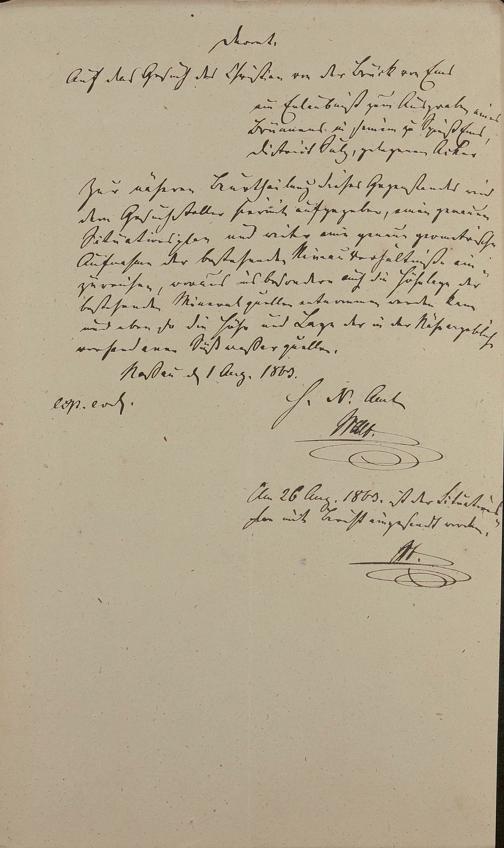 Decret.
Auf das Gesuch des Christian von der Brück von Ems
um Erlaubniß zum Ausgraben eines
Brunnens in seinem zu Spieß Ems,
District Sulz, gelegenen Acker
Zur näheren Beurtheilung dieses Gegenstandes wird
dem Gesuchsteller hiermit aufgegeben, einen genauen
Situationsplan und weiter eine genaue geometrische
Aufnahme der bestehenden Niveauverhältniße ein
zureichen, woraus insbesondere auch die Höhelage der
bestehenden Mineralquellen entnommen werden kann
und eben so die Höhe und Lage der in der Nähe
vorhandenen Süßwasserquellen.
Nassau d 1 Aug. 1863.
exp. eod.
H. N. Amt
Am 26 Aug. 1863. ist der Situations
plan mit Bericht eingesandt worden.